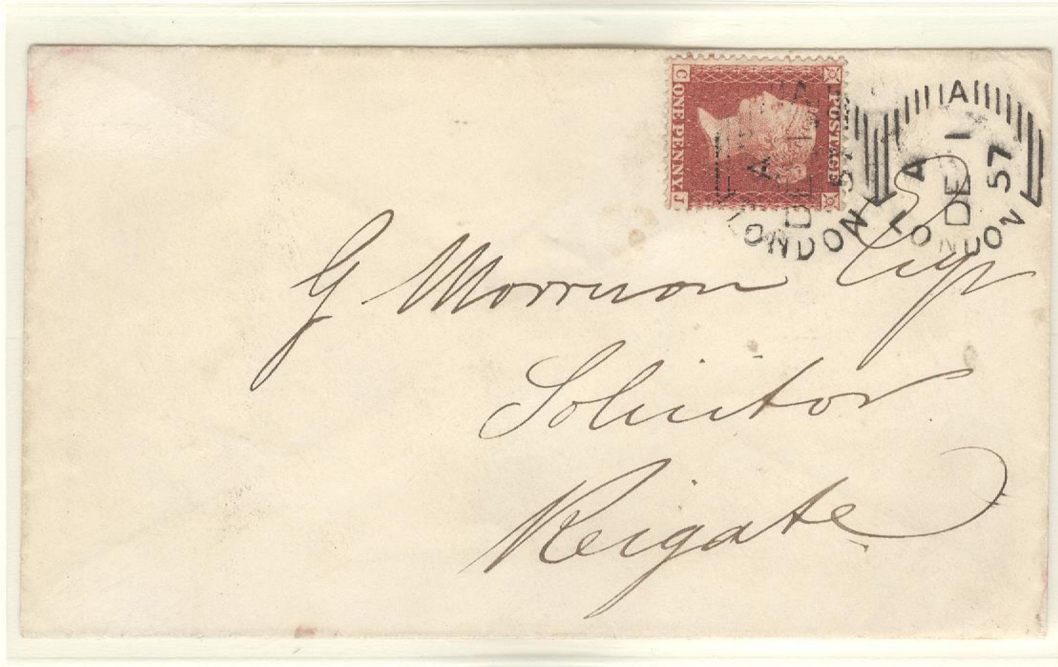 POSTAGE
C ONE PENNY J
A
DE 1
57
LONDON
A
A
DE 1
57
LONDON
G Morrison Esqr
Solicitor
Reigate